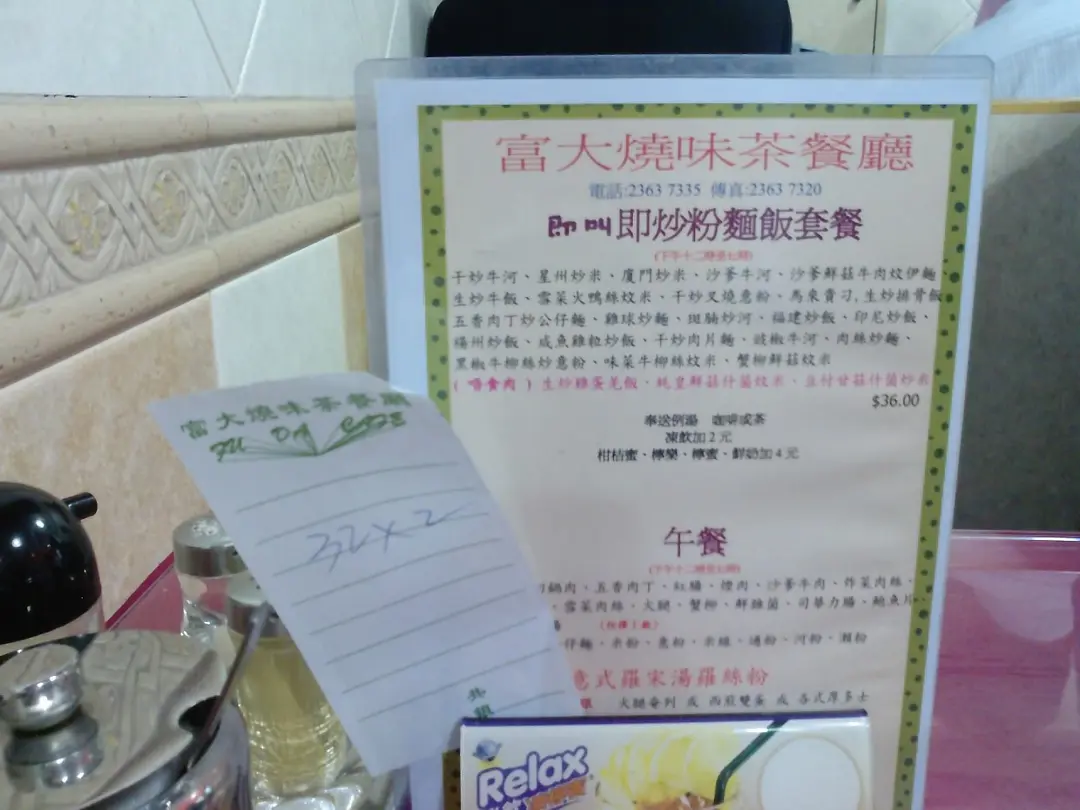 富大燒味茶餐廳
電話:2363 7335 傳真:2363 7320
即叫即炒粉麵飯套餐
(下午十二時至七時)
干炒牛河、星州炒米、廈門炒米、沙爹牛河、沙爹鮮菇牛肉炆伊麵、
生炒牛飯、雪菜火鴨絲炆米、干炒叉燒意粉、馬來貴刁,生炒排骨飯
五香肉丁炒公仔麵、雞球炒麵、斑腩炒河、福建炒飯、印尼炒飯、
楊州炒飯、咸魚雞粒炒飯、干炒肉片麵、豉椒牛河、肉絲炒麵、
黑椒牛柳絲炒意粉、味菜牛柳絲炆米、蟹柳鮮菇炆米
(唔食肉)生炒雞蛋
$36.00
奉送例湯 咖啡或茶
凍飲加2元
柑桔蜜、檸樂、檸蜜、鮮奶加4元
午餐
肉、五香肉丁、紅腸、煙肉、沙爹牛肉、炸菜肉絲、
雪菜肉絲、火腿、蟹柳、鮮雞
仔麵、米粉、意粉、米線、通粉、河粉、瀨粉
意式羅家湯羅絲粉
火腿奄列 或 西煎雙蛋 或 各式厚多士
富大燒味茶餐廳
FU DA CAFE
32x2
共銀
Relax